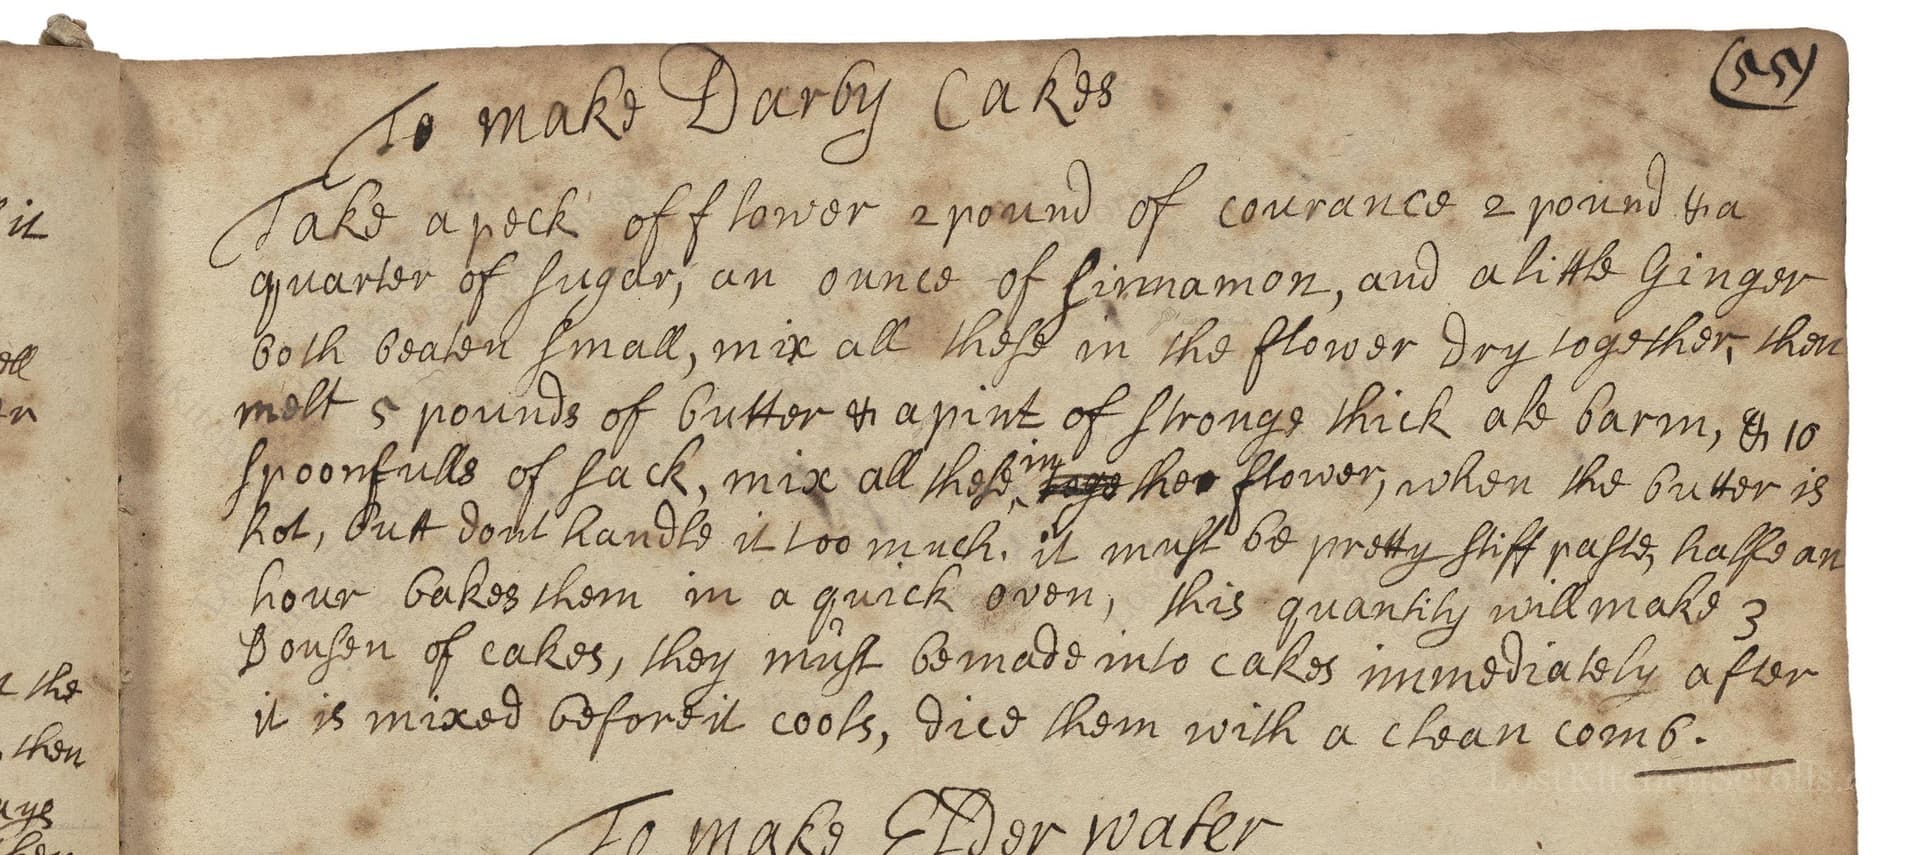 (55)
To make Darby Cakes
Take a peck of flower 2 pound of courance 2 pound & a
quarter of sugar, an ounce of Sinnamon, and a little Ginger
both beaten small, mix all these in the flower dry together, then
melt 5 pounds of butter & a pint of stronge thick ale barm, & 10
spoonfulls of sack, mix all these in the flower, when the butter is
hot, butt dont handle it too much. it must be pretty stiff paste, halfe an
hour bakes them in a quick oven, this quantity will make 3
Dousen of cakes, they must be made into cakes immediately after
it is mixed before it cools, dice them with a clean comb.
To make Elder water
it
ell
er
the
, then
ays
LostKitchenScrolls.